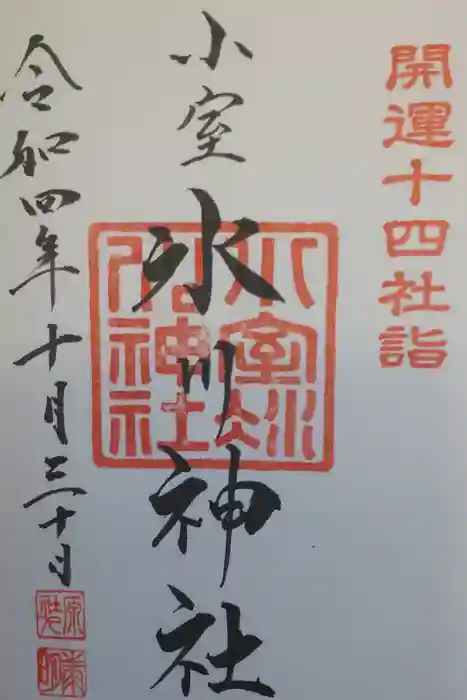 開運十四社詣
小室
氷川神社
小室氷川神社
令和四年十月三十日